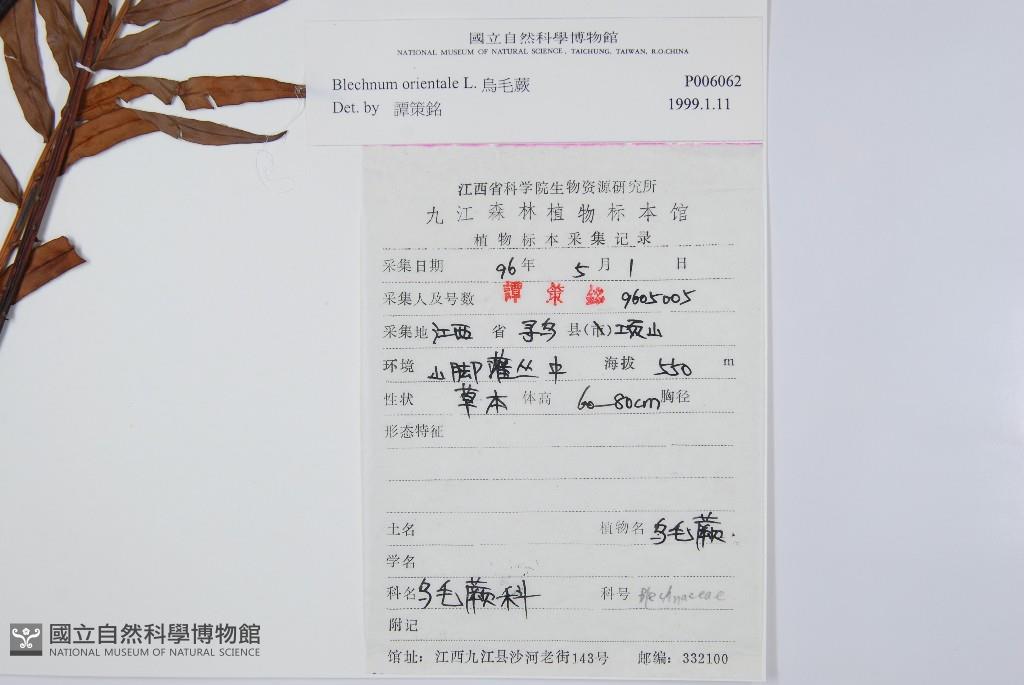 國立自然科學博物館
NATIONAL MUSEUM OF NATURAL SCIENCE, TAICHUNG, TAIWAN, R.O.CHINA
Blechnum orientale L. 烏毛蕨 P006062
Det. by 譚策銘 1999.1.11
江西省科学院生物资源研究所
九江森林植物标本馆
植物标本采集记录
采集日期 96年 5月 1日
采集人及号数 譚策銘 9605005
采集地 江西 省 寻乌 县(市) 项山
环境 山脚灌丛中 海拔 550 m
性状 草本 体高 60—80cm 胸径
形态特征
土名 植物名 乌毛蕨.
学名
科名 乌毛蕨科 科号 Blechnaceae
附记
馆址: 江西九江县沙河老街143号 邮编: 332100
國立自然科學博物館
NATIONAL MUSEUM OF NATURAL SCIENCE